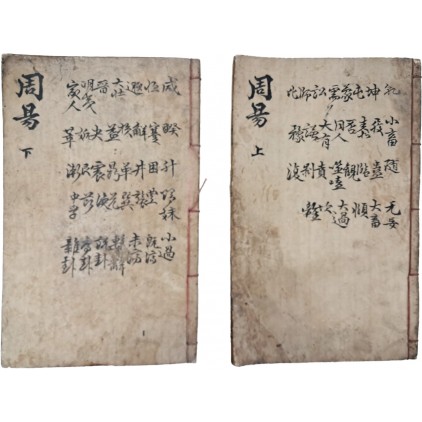 周易
上
乾 坤 屯 蒙 需 訟 師 比
小畜 履 泰 否 同人 大有 謙 豫
隨 蠱 臨 觀 噬嗑 賁 剝 復
无妄 大畜 頤 大過 坎 離
周易
下
咸 恆 遯 大壯 晉 明夷 家人
睽 蹇 解 損 益 夬 姤 萃
升 困 井 革 鼎 震 艮 漸
歸妹 豐 旅 巽 兌 渙 節 中孚
小過 既濟 未濟 繫辭 說卦 序卦 雜卦